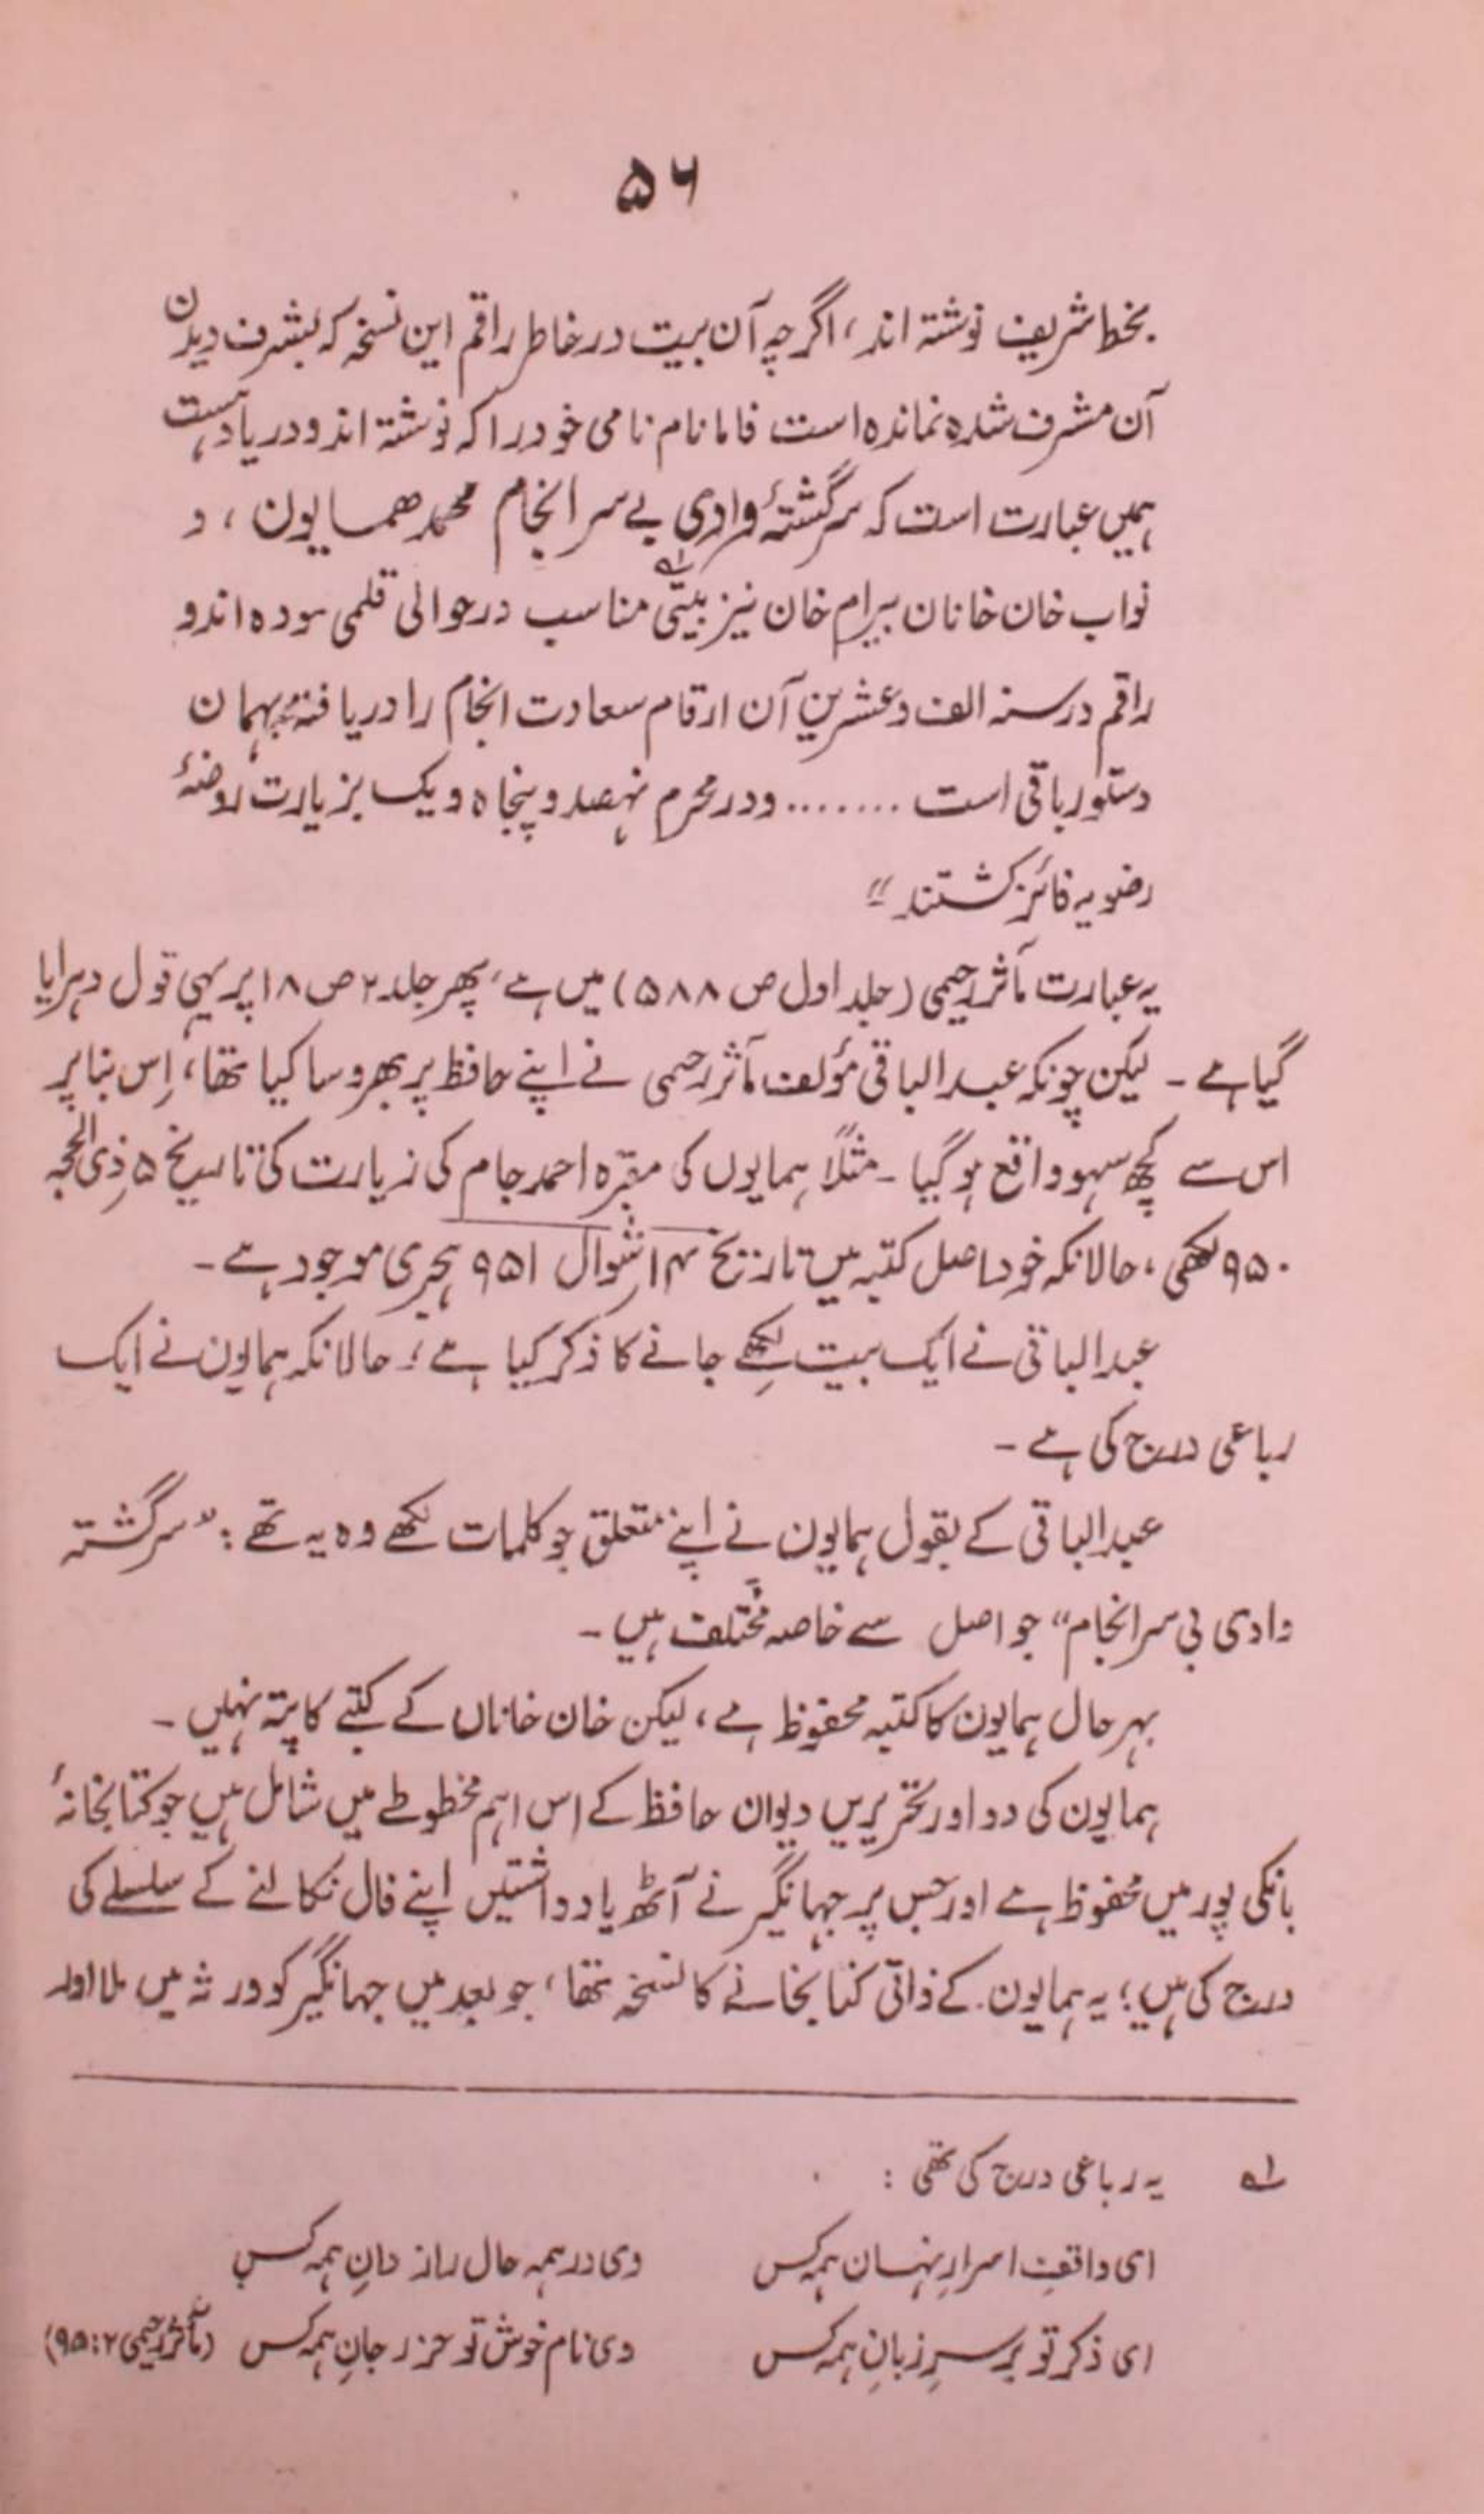 ۵۶
بخط شریف نوشتہ اند، اگرچہ آن بیت در خاطر راقم این نسخہ کہ بشرف دیدن
آن مشرف شدہ نماندہ است فاما نام نامی خود را کہ نوشتہ اند و در یاد ہست
ہمیں عبارت است کہ سرگشتۂ وادی بے سر انجام محمد ھمایون، و
نواب خان خانان بیرام خان نیز بیتی؎۱ مناسب در حوالی قلمی سودہ اند و
راقم در سنہ الف و عشرین آن ارقام سعادت انجام را دریافتہ بہمان
دستور باقی است ........ و در محرم نہصد و پنجاہ و یک بزیارت روضۂ
رضویہ فائز گشتند"
یہ عبارت مآثر رحیمی (جلد اول ص ۵۸۸) میں ہے، پھر جلد ۲ ص ۱۸ پر یہی قول دہرایا
گیا ہے ۔ لیکن چونکہ عبد الباقی مؤلف مآثر رحیمی نے اپنے حافظ پر بھروسا کیا تھا، اِس بنا پر
اس سے کچھ سہو واقع ہو گیا ۔ مثلاً ہمایوں کی مقبرہ احمد جام کی زیارت کی تاریخ ۵ ذی الحجہ
۹۵۰ لکھی، حالانکہ خود اصل کتبہ میں تاریخ ۱۴ شوال ۹۵۱ ہجری موجود ہے ۔
عبد الباقی نے ایک بیت لکھے جانے کا ذکر کیا ہے؛ حالانکہ ہمایون نے ایک
رباعی درج کی ہے ۔
عبد الباقی کے بقول ہمایون نے اپنے متعلق جو کلمات لکھے وہ یہ تھے: "سرگشتہ
وادی بی سر انجام" جو اصل سے خاصہ مختلف ہیں ۔
بہر حال ہمایون کا کتبہ محفوظ ہے، لیکن خان خاناں کے کتبے کا پتہ نہیں ۔
ہمایون کی دو اور تحریریں دیوان حافظ کے اس اہم مخطوطے میں شامل ہیں جو کتابخانۂ
بانکی پور میں محفوظ ہے اور جس پر جہانگیر نے آٹھ یادداشتیں اپنے فال نکالنے کے سلسلے کی
درج کی ہیں؛ یہ ہمایون کے ذاتی کتابخانے کا نسخہ تھا، جو بعد میں جہانگیر کو ورثہ میں ملا اور
؎۱ یہ رباعی درج کی تھی :
ای واقفِ اسرارِ نہان ہمہ کس وی در ہمہ حال راز دانِ ہمہ کس
ای ذکر تو بر سرِ زبانِ ہمہ کس وی نام خوش تو حرز جانِ ہمہ کس (مآثر رحیمی ۲: ۹۵)